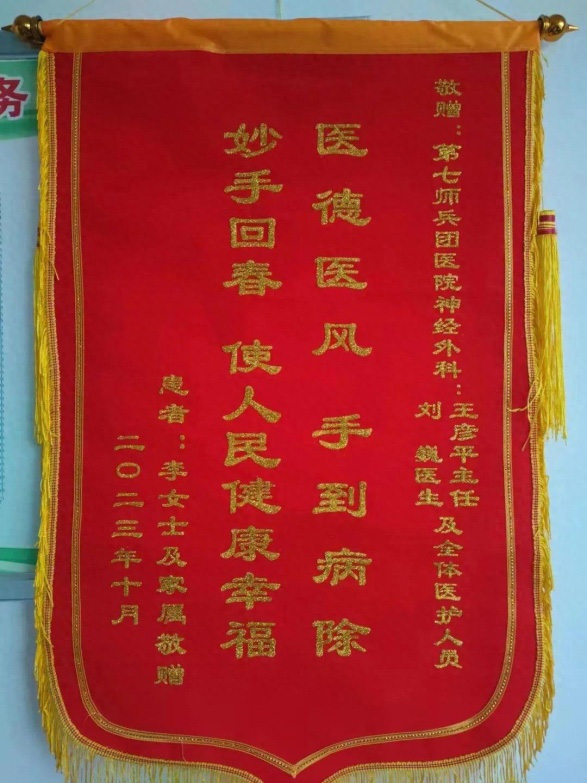 敬赠：第七师兵团医院神经外科：王彦平主任
刘巍医生
及全体医护人员
医德医风 手到病除
妙手回春 使人民健康幸福
患者：李女士及家属敬赠
二〇二三年十月
务